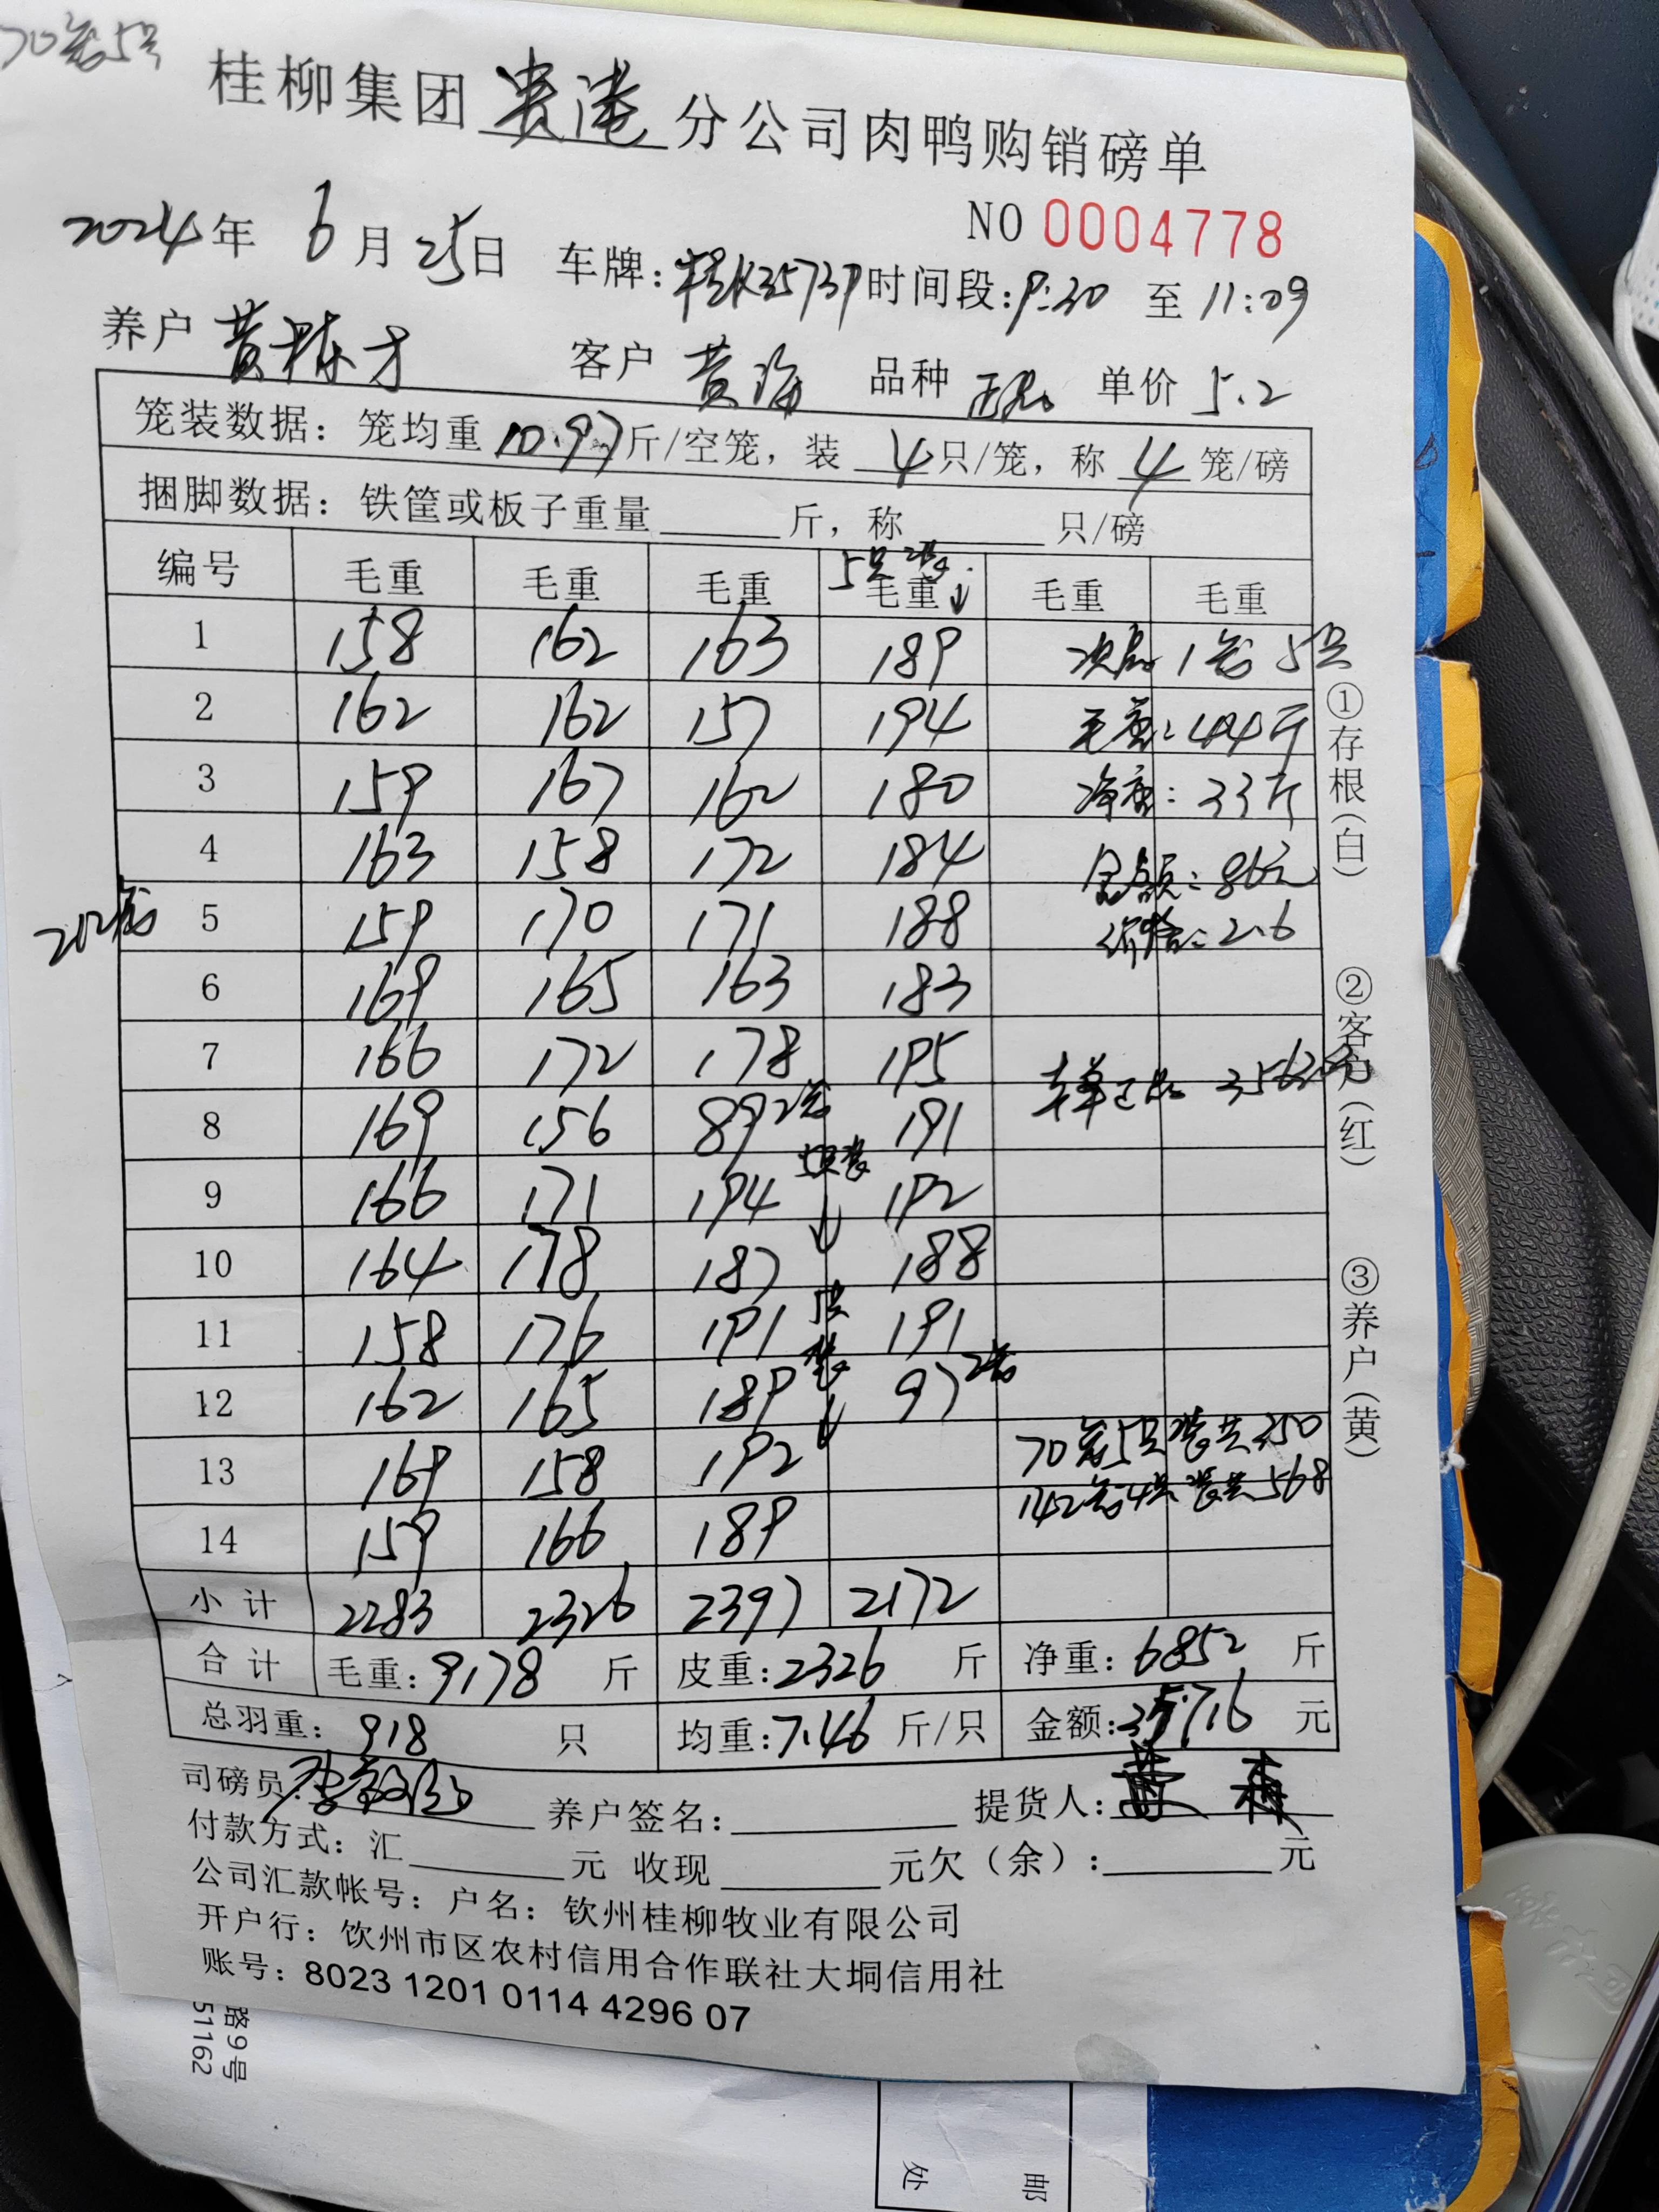 70笼5只
桂柳集团 贵港 分公司肉鸭购销磅单
NO 0004778
2024年 6月25日 车牌: 时间段:9:30 至 11:09
养户 黄栋才 客户 黄海 品种 正品 单价 5.2
笼装数据: 笼均重 10.97 斤/空笼, 装 4 只/笼, 称 4 笼/磅
捆脚数据: 铁筐或板子重量 斤, 称 只/磅
5只装↓
编号 毛重 毛重 毛重 毛重 毛重 毛重
1 158 162 163 189 次品 1笼 5只
2 162 162 157 194 毛重: 44斤
3 159 167 162 180 净重: 33斤
4 163 158 172 184 金额: 86元
212笼 5 159 170 171 188 价格: 2.6
6 169 165 163 183
7 166 172 178 195
8 169 156 89 2笼 191
9 166 171 194 5只装↓ 192
10 164 178 187 188
11 158 176 191 5只装↓ 191
12 162 165 189 97 2笼
13 169 158 192 70笼5只装共350
14 159 166 189 142笼4只装共568
小计 2283 2326 2397 2172
合计 毛重: 9178 斤 皮重: 2326 斤 净重: 6852 斤
总羽重: 918 只 均重: 7.46 斤/只 金额: 元
司磅员: 养户签名: 提货人:
付款方式: 汇 元 收现 元欠(余): 元
公司汇款帐号: 户名: 钦州桂柳牧业有限公司
开户行: 饮州市区农村信用合作联社大垌信用社
账号: 8023 1201 0114 4296 07
①存根(白) ②客户(红) ③养户(黄)
路9号
51162
处
邮